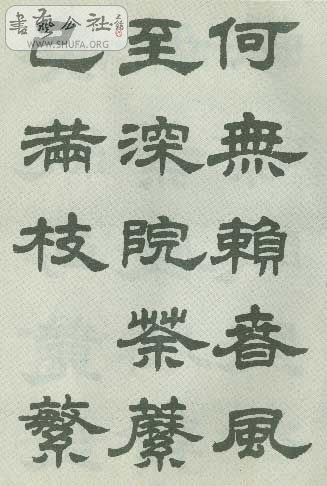 何無賴春風
至深院荼蘼
已滿枝繁
書藝公社
WWW.SHUFA.ORG